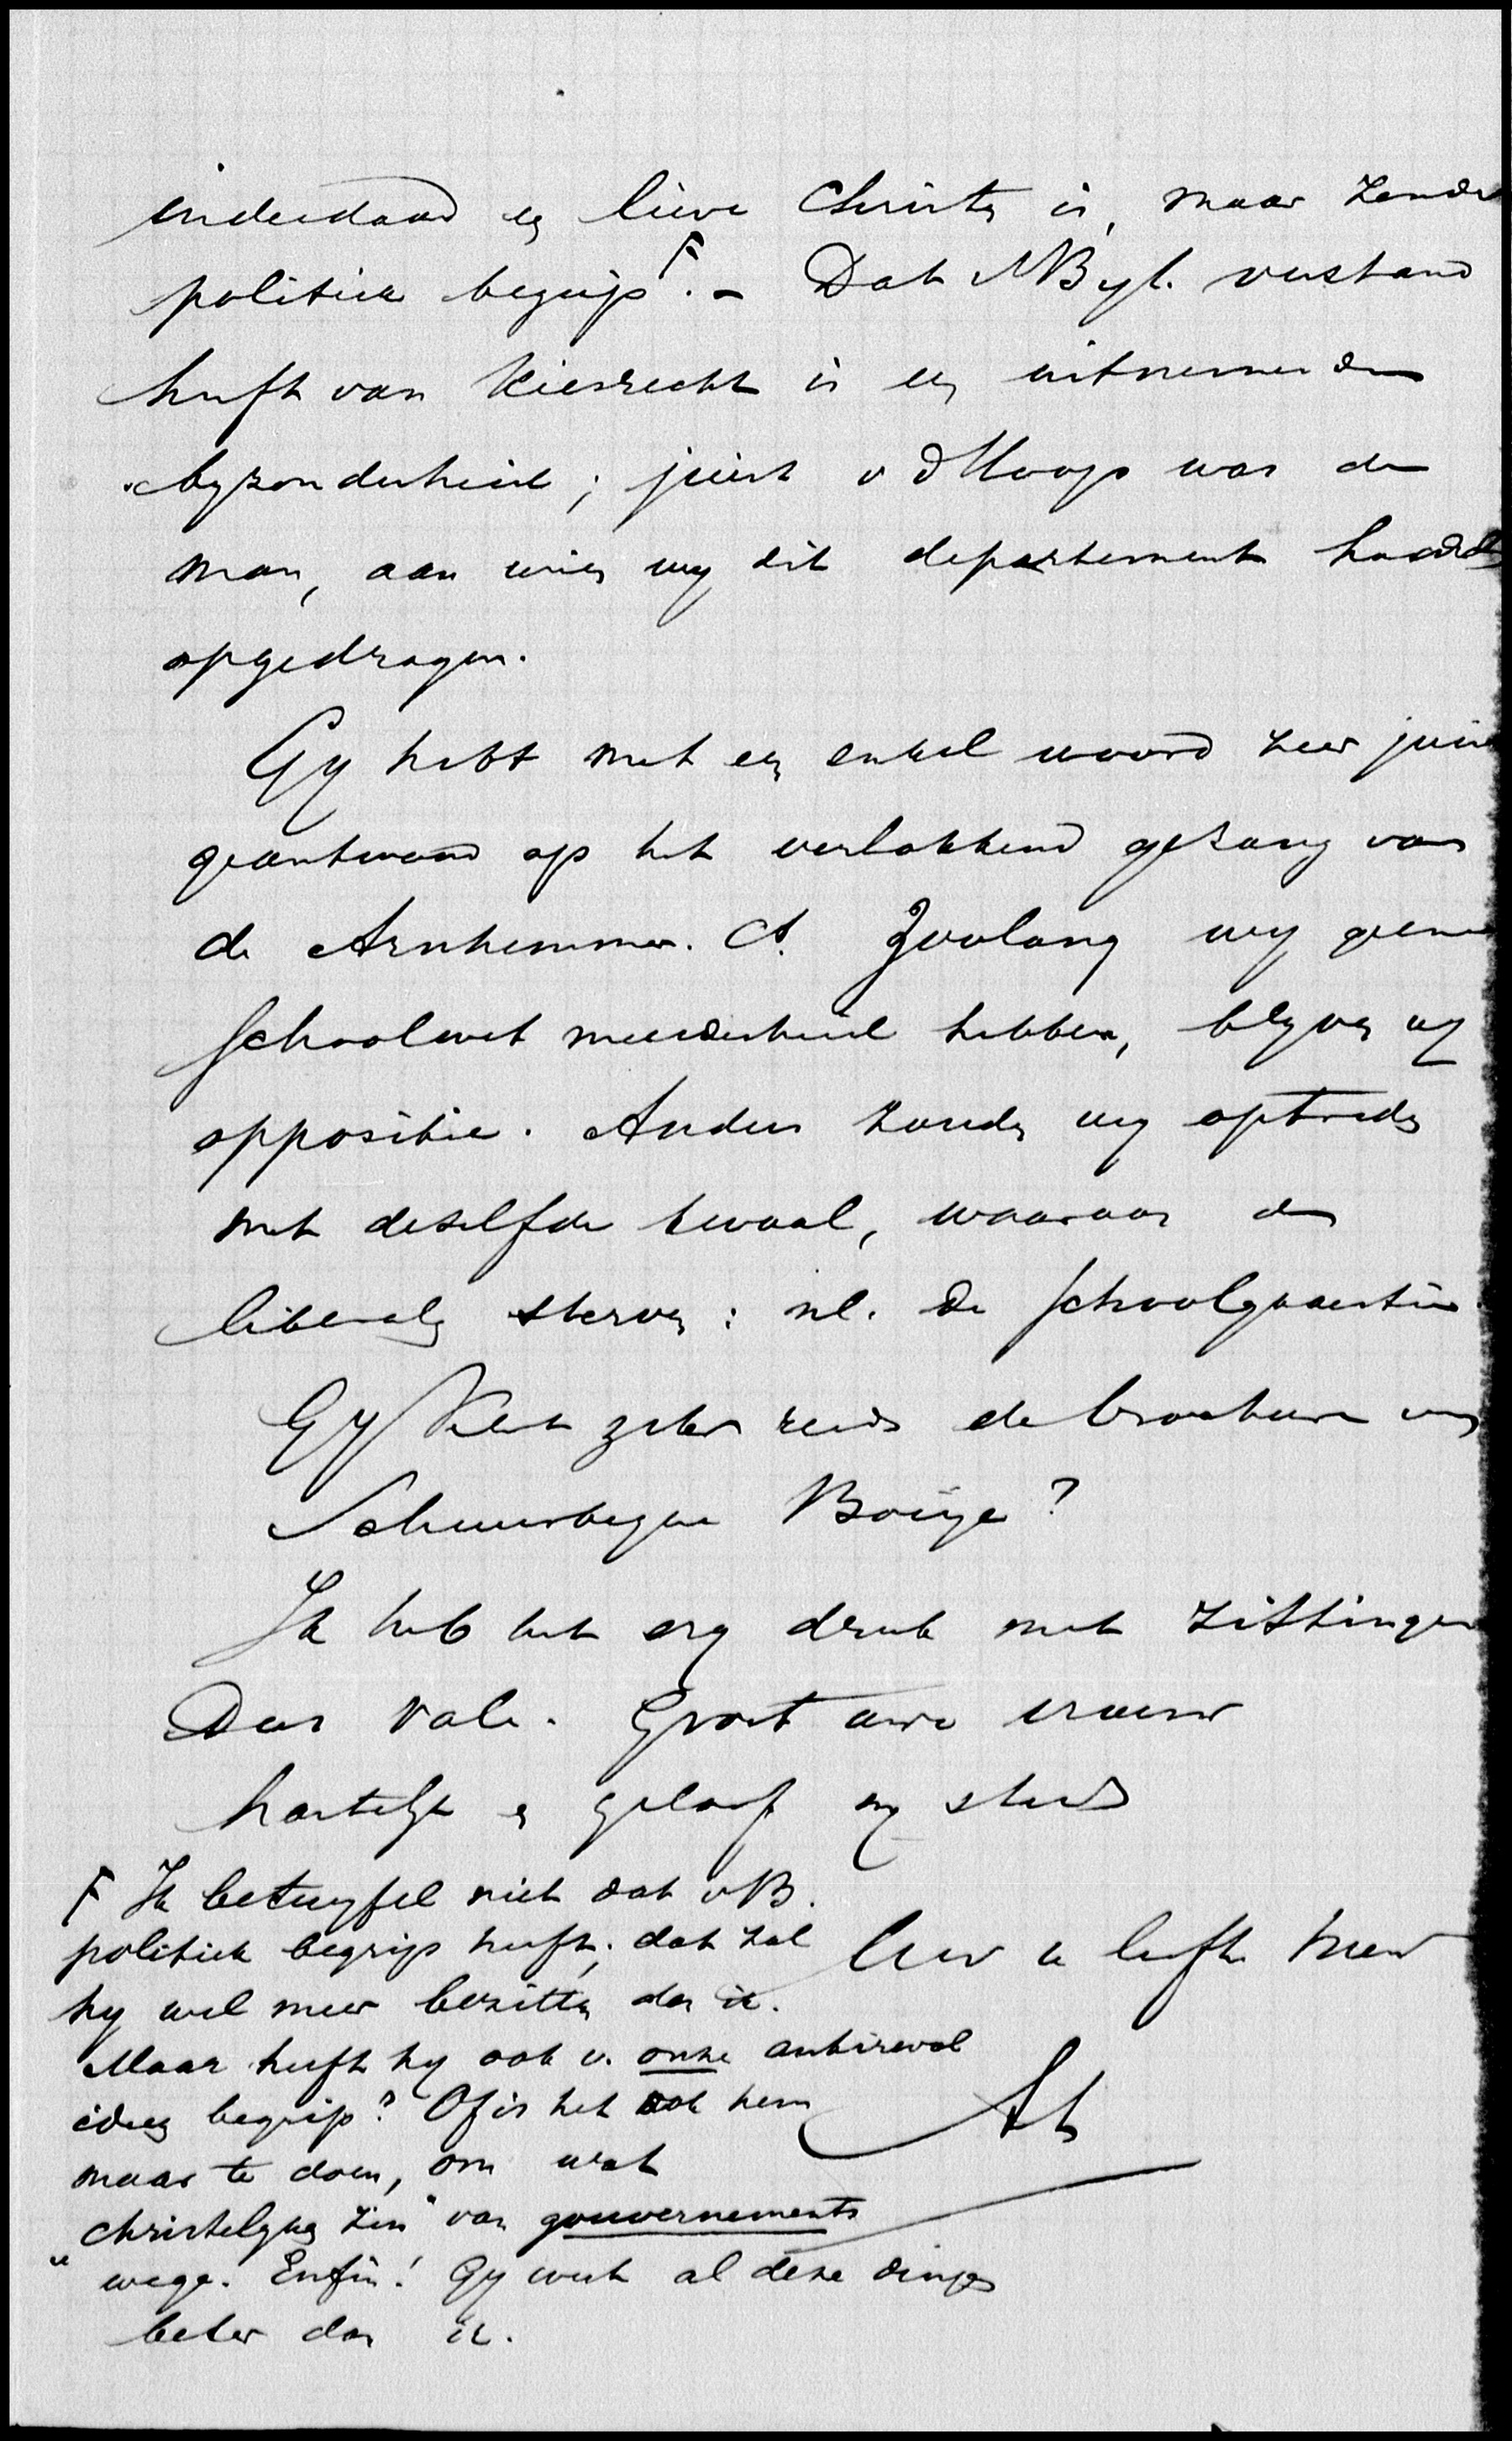 inderdaad een lieve Christen is, maar zonder
politiek begrip F. – Dat MByl. verstand
heeft van kiesrecht is een uitnemende
byzonderheid; juist vdHoop was de
man, aan wien wy dit departement hadden
opgedragen.
Gy hebt met een enkel woord zeer juist
geantwoord op het verlokkend gezang van
de Arnhemmer. Ct. Zoolang wy geene
schoolwet meerderheid hebben, blyven wy
oppositie. Anders zouden wy optreden
met dezelfde kwaal, waaraan de
liberalen sterven: nl. de schoolquaestie.
Gy kent zeker reeds de brochure van
Schuurbeque Boeye?
Ik heb het erg druk met zittingen
Dus vale. Groet uwe vrouw
hartelyk en geloof my steeds
F Ik betwyfel niet dat vB.
politiek begrip heeft; dat zal
hy wel meer bezitten dan ik.
Maar heeft hy ook v. onze antirevol
ideen begrip? Of is het ook hem
maar te doen, om wat
christelyken zin" van gouvernements
" wege. Enfin! Gy weet al deze dingen
beter dan ik.
Uw u liefh. broer